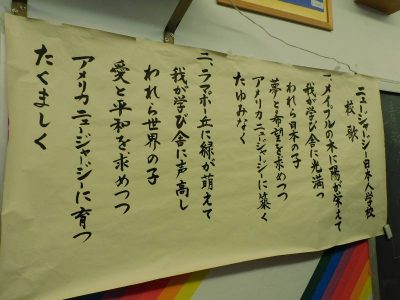 ニュージャージー日本人学校
校歌
一、メイプルの木に陽が栄えて
我が学び舎に光満つ
われら日本の子
夢と希望を求めつつ
アメリカニュージャージーに築く
たゆみなく
二、ラマポー丘に緑が萌えて
我が学び舎に声高し
われら世界の子
愛と平和を求めつつ
アメリカニュージャージーに育つ
たくましく